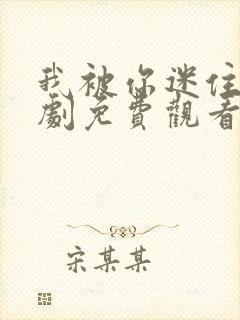 我被你迷住
劇免費觀看
宋某某